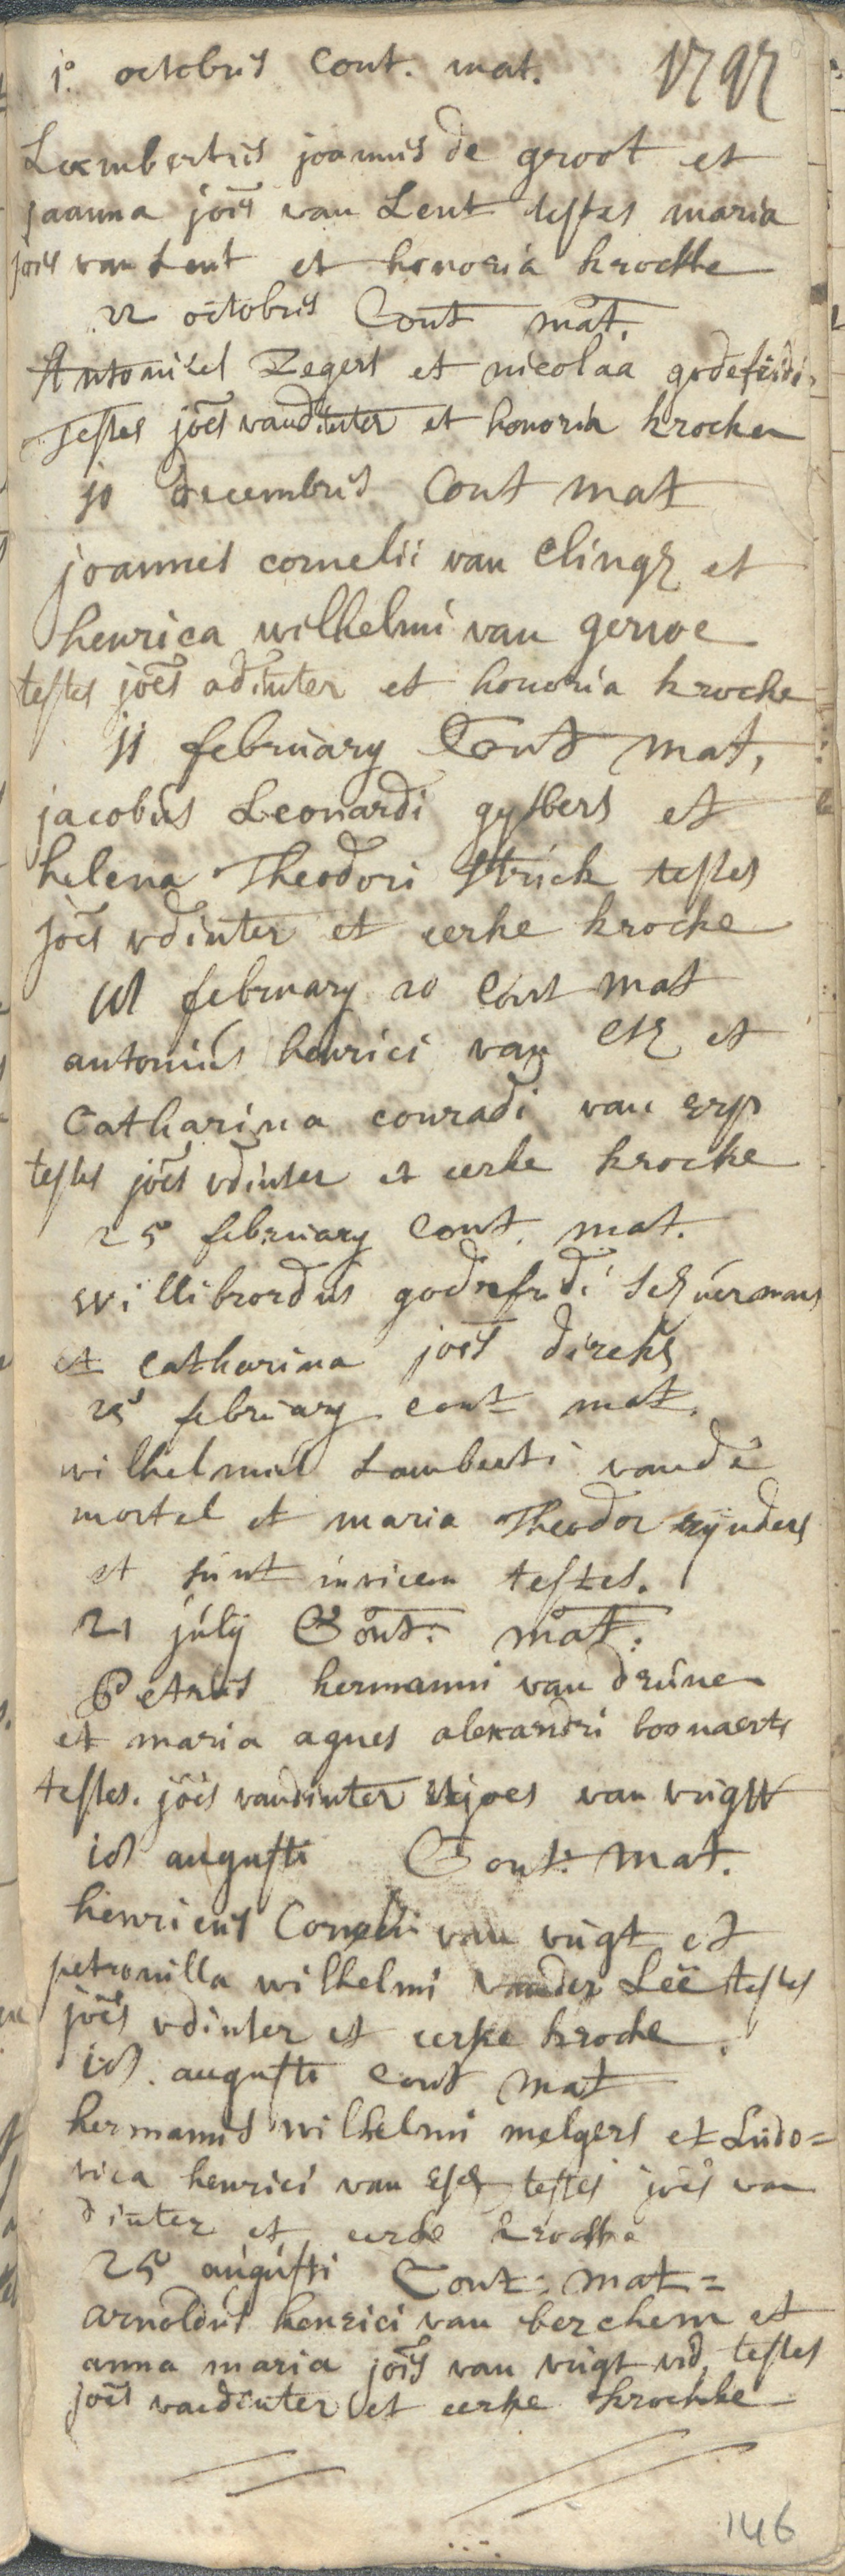 1° octobris Cont. mat.
Lambertus joannis de groot et
joanna jois van Lent testes maria
jois van Lent et honoria krocke
22 octobris Cont mat.
Antonius Zegers et nicolaa godefridi
Testes joēs vandinter et honoria krocke
10 decembris Cont mat
joannes cornelii van et
henrica wilhelmi van gerwe
testes joēs vdinter et honoria krocke
11 february Cont mat,
jacobus Leonardi gysbers et
helena Theodori Strick testes
joēs vdinter et eerke krocke
18 february Cont mat
antonius henrici van et
Catharina conradi van erp
testes joēs vdinter et eerke krocke
25 february Cont. mat.
Willibrordus godefridi
et catharina jois
february cont mat.
wilhelmus Lamberti vandē
mortel et maria Theodor rynders
et sunt invicem testes.
21 july Cont: mat:
Petrus hermanni van drúne
et maria agnes alexandri boonaerts
testes. joēs vandinter et joes van vugt
18 augusti Cont: mat.
henricus Cornelii van vugt et
petronilla wilhelmi vander Leē testes
joēs vdinter et eerke krocke.
18. augusti Cont mat
hermanus wilhelmi melgers et Ludo=
vica henrici van testes joēs van
dinter et eerke krocke
25 augústi Cont: mat=
arnoldús henrici van berchem et
anna maria jois van vúgt vid testes
joēs vandinter et eerke krockke
146